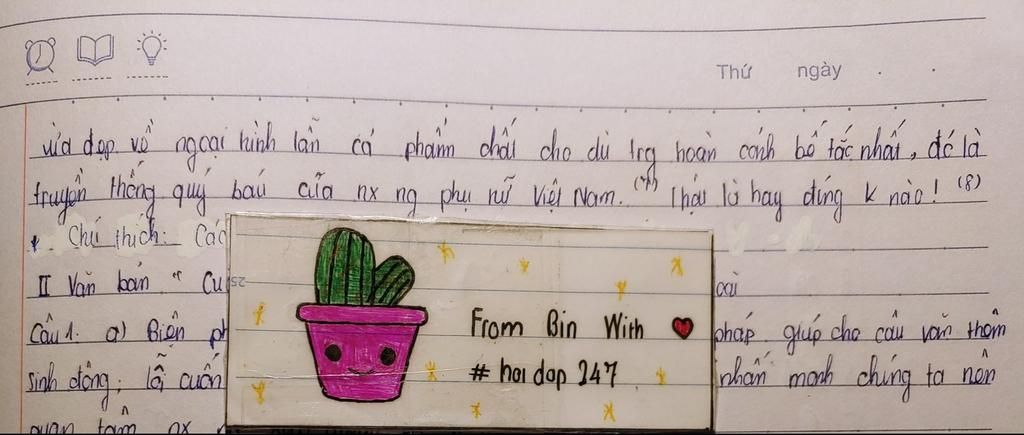 Thứ ngày
vừa đẹp về ngoại hình lẫn cả phẩm chất cho dù trg hoàn cảnh bế tắc nhất, đó là
truyền thống quý báu của nx ng phụ nữ Việt Nam. (7) Thật là hay đúng k nào! (8)
* Chú thích: Các
II Văn bản " Cu
Câu 1: a) Biện ph
pháp giúp cho câu văn thêm
sinh động, lôi cuốn
nhấn mạnh chúng ta nên
quan tâm nx
From Bin With
# hoi dap 247